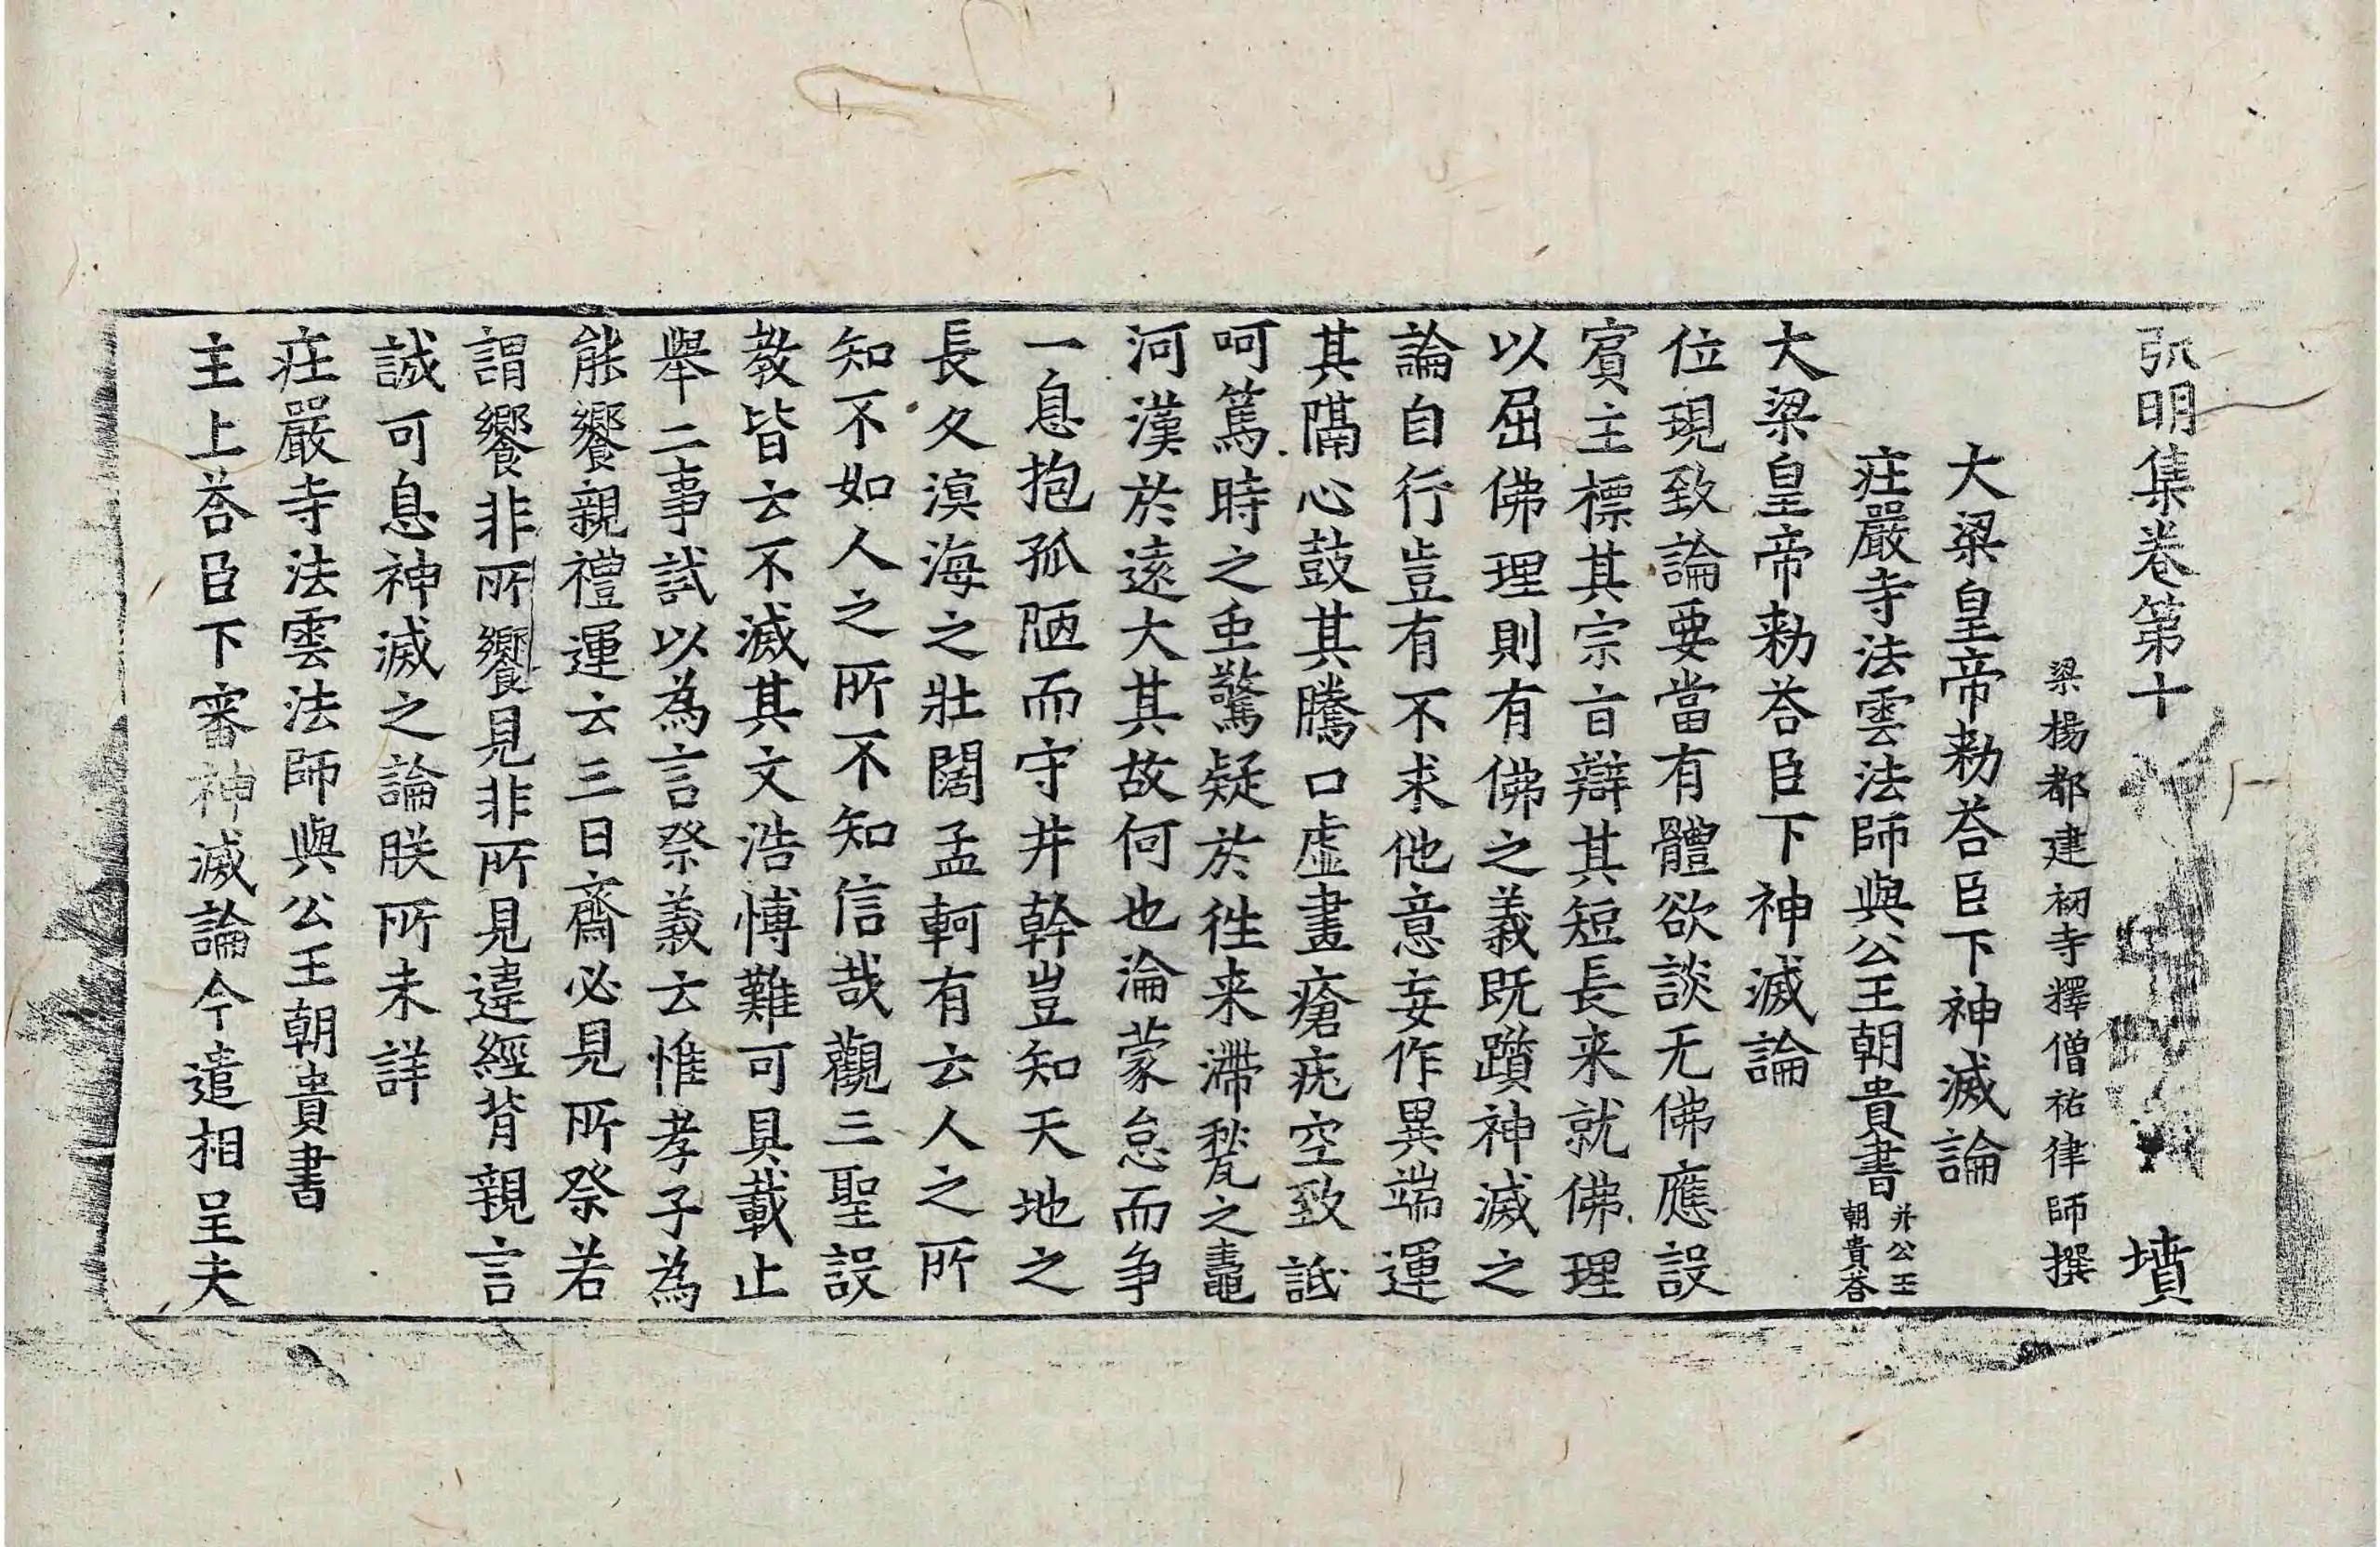 弘明集卷第十　墳
梁楊都建初寺釋僧祐律師撰
大梁皇帝勑荅臣下神滅論
庄嚴寺法雲法師與公王朝貴書并公王朝貴荅
大梁皇帝勑荅臣下神滅論
位現致論要當有體欲談无佛應設
賔主標其宗旨辯其短長来就佛理
以屈佛理則有佛之義既躓神滅之
論自行豈有不求他意妄作異端運
其隔心鼓其騰口虛畫瘡疣空致詆
呵篤時之虫驚疑於徃来滯甃之鼃
河漢於遠大其故何也淪蒙怠而争
一息抱孤陋而守井幹豈知天地之
長久溟海之壯闊孟軻有云人之所
知不如人之所不知信哉觀三聖設
教皆云不滅其文浩博難可具載止
舉二事試以為言祭義云惟孝子為
能饗親禮運云三日齋必見所祭若
謂饗非所饗見非所見違經背親言
誠可息神滅之論朕所未詳
庄嚴寺法雲法師與公王朝貴書
主上荅臣下審神滅論今遣相呈夫